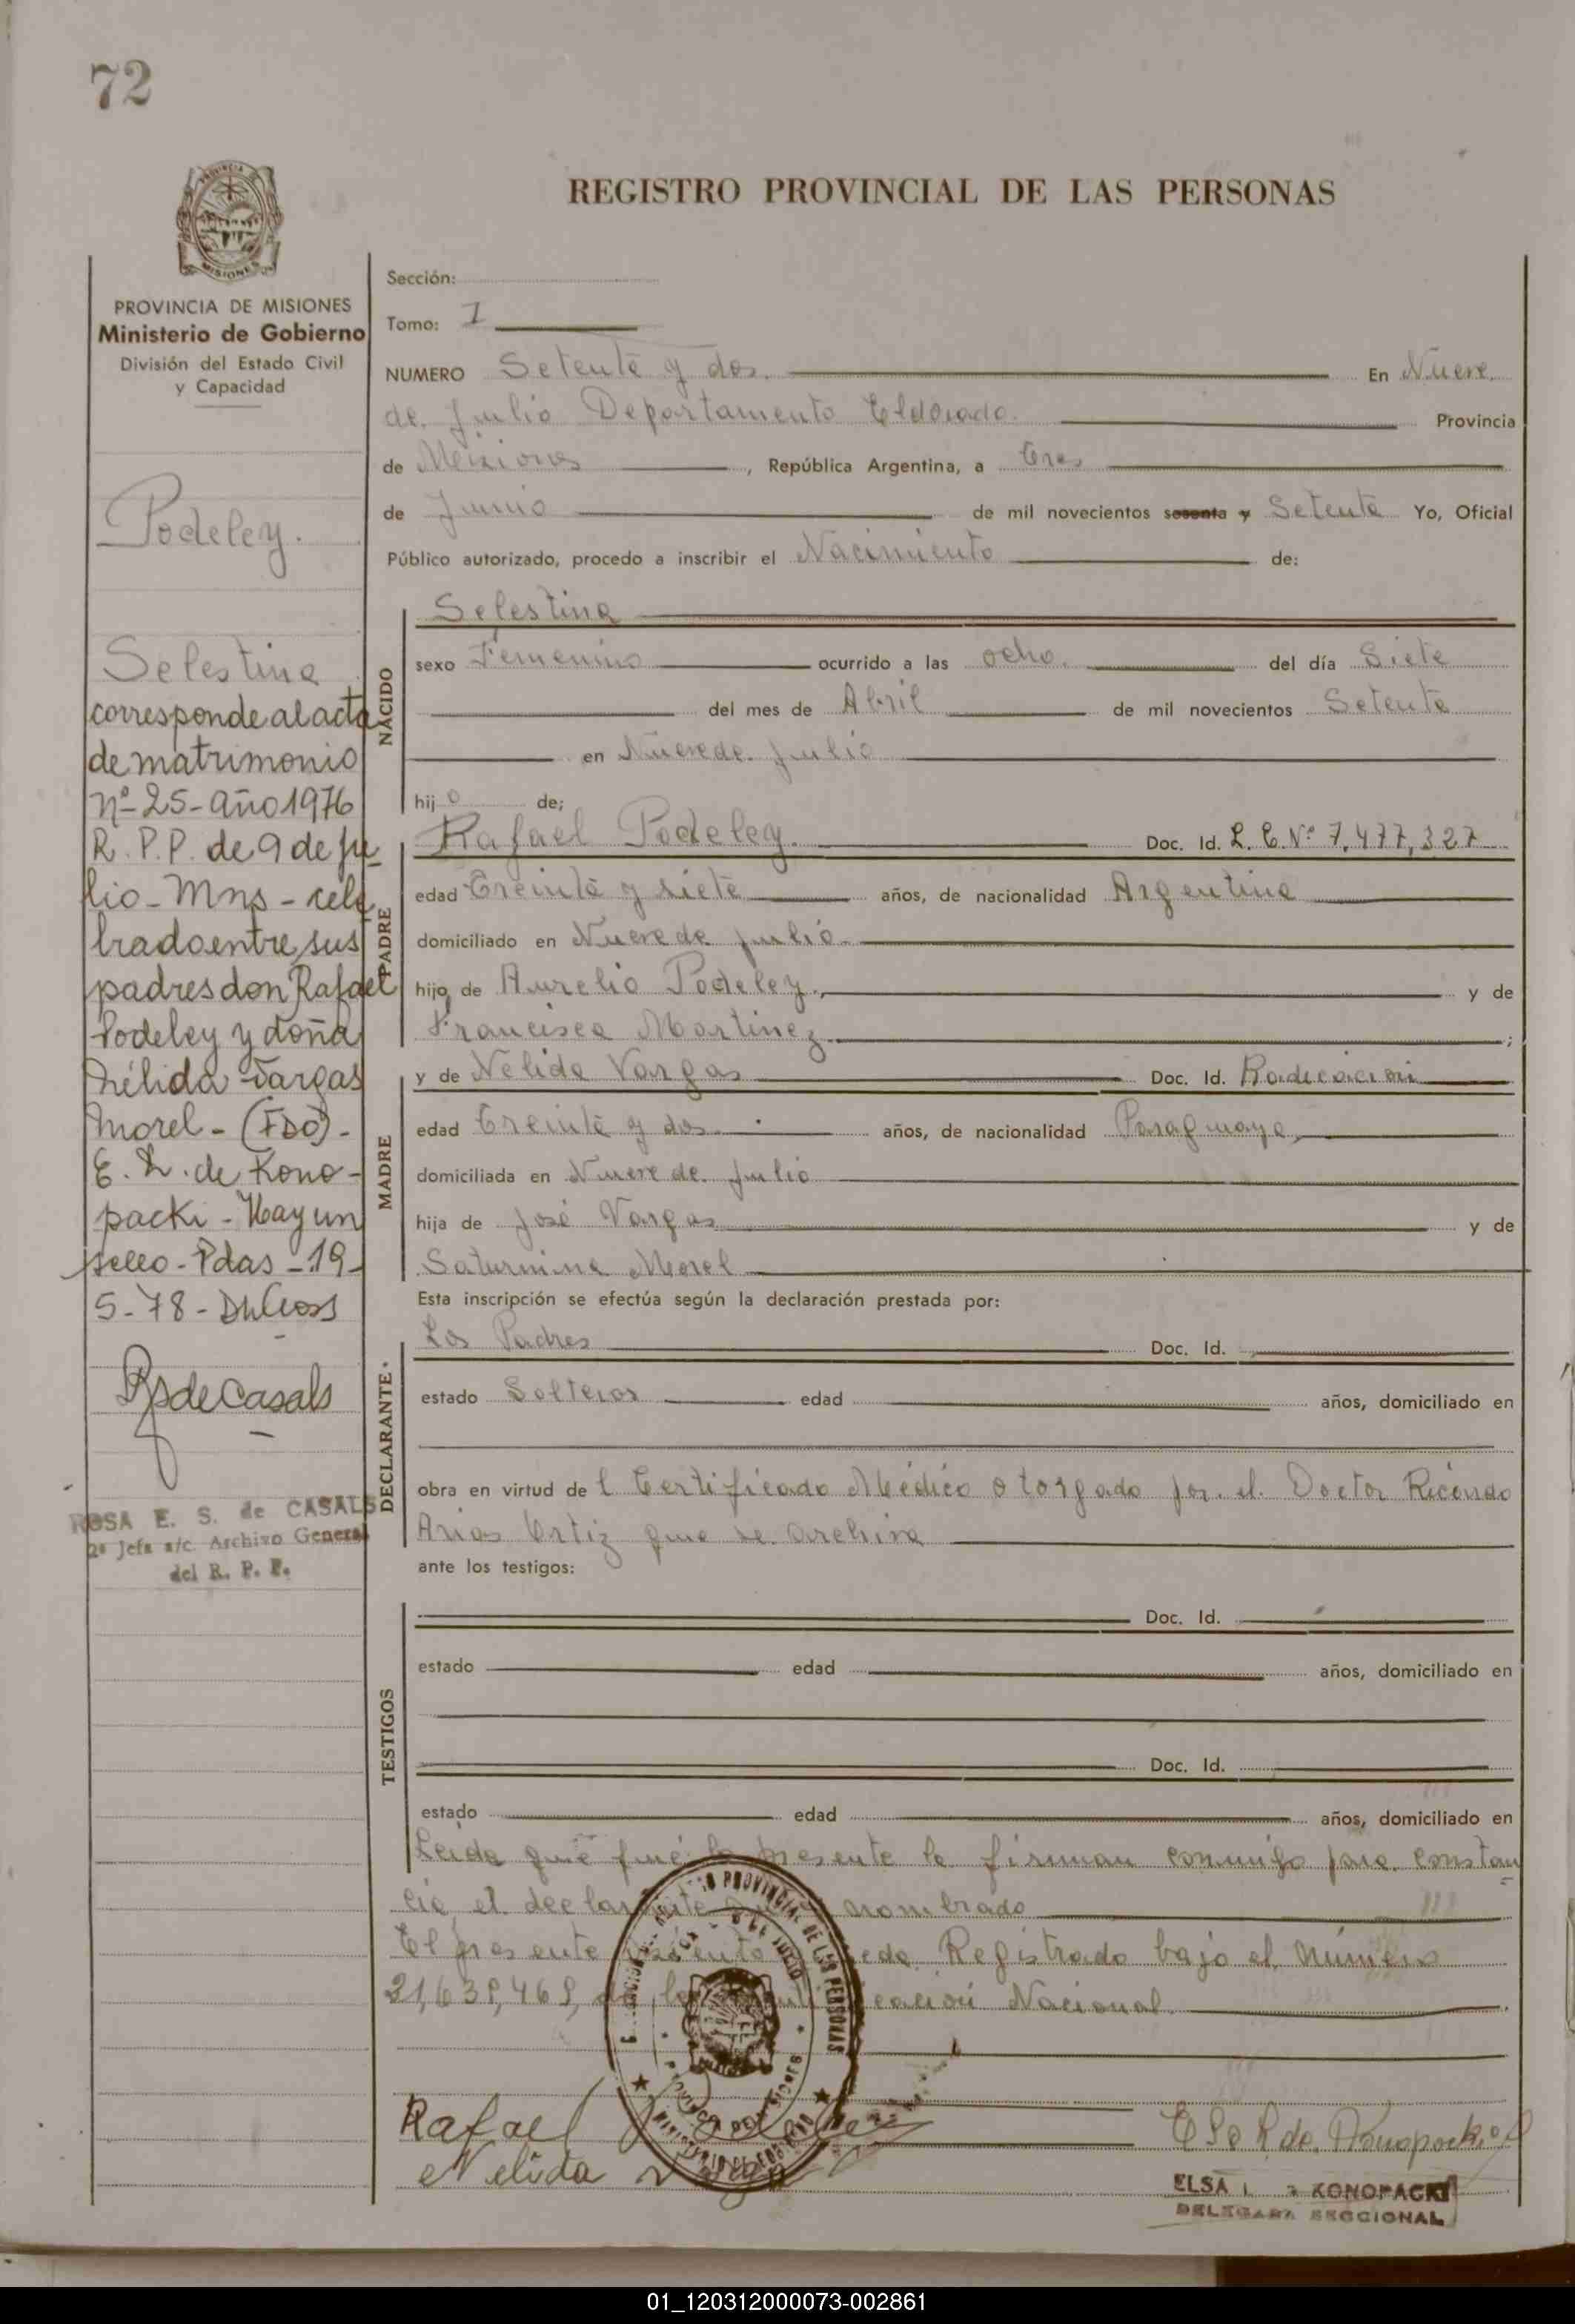 72
REGISTRO PROVINCIAL DE LAS PERSONAS
PROVINCIA
MISIONES
PROVINCIA DE MISIONES
Ministerio de Gobierno
División del Estado Civil
y Capacidad
Podeley.
Selestina
corresponde al acta
de matrimonio
nº 25 - año 1976
R. P. P. de 9 de ju
lio - Mns - cele
brado entre sus
padres don Rafael
Podeley y doña
Nélida Vargas
Morel - (FDO) -
E. L. de Kono-
packi - Hay un
sello - Pdas - 19 -
5 - 78 -
RSdeCasals
ROSA E. S. de CASALS
2ª Jefa a/c. Archivo General
del R. P. P.
Sección:
Tomo: I
NUMERO Setenta y dos. En Nueve
de Julio Departamento Eldorado. Provincia
de Misiones, República Argentina, a tres
de Junio de mil novecientos sesenta y Setenta Yo, Oficial
Público autorizado, procedo a inscribir el Nacimiento de:
NACIDO
Selestina
sexo Femenino ocurrido a las ocho. del día Siete
del mes de Abril de mil novecientos Setenta
en Nueve de Julio
hijo de;
PADRE
Rafael Podeley. Doc. Id. L. E. Nº 7,477,327
edad Treinta y siete años, de nacionalidad Argentina
domiciliado en Nueve de Julio.
hijo de Aurelio Podeley. y de
Francisca Martinez ;
MADRE
y de Nélida Vargas Doc. Id. Radicación
edad Treinta y dos. años, de nacionalidad Paraguaya,
domiciliada en Nueve de Julio
hija de José Vargas y de
Saturnina Morel
Esta inscripción se efectúa según la declaración prestada por:
DECLARANTE
Los Padres Doc. Id.
estado Solteros edad años, domiciliado en
obra en virtud del Certificado Médico otorgado por el Doctor Ricardo
Arias Ortiz que se archiva
ante los testigos:
TESTIGOS
Doc. Id.
estado edad años, domiciliado en
Doc. Id.
estado edad años, domiciliado en
Leida que fué la presente la firman conmigo para constan
cia, el declarante nombrado
El presente Registrado bajo el número
21,639,469, de la Identificación Nacional.
PROVINCIAL DE LAS PERSONAS
Rafael Podeley
Nelida
ELSA KONOPACKI
DELEGADA SECCIONAL
01_120312000073-002861